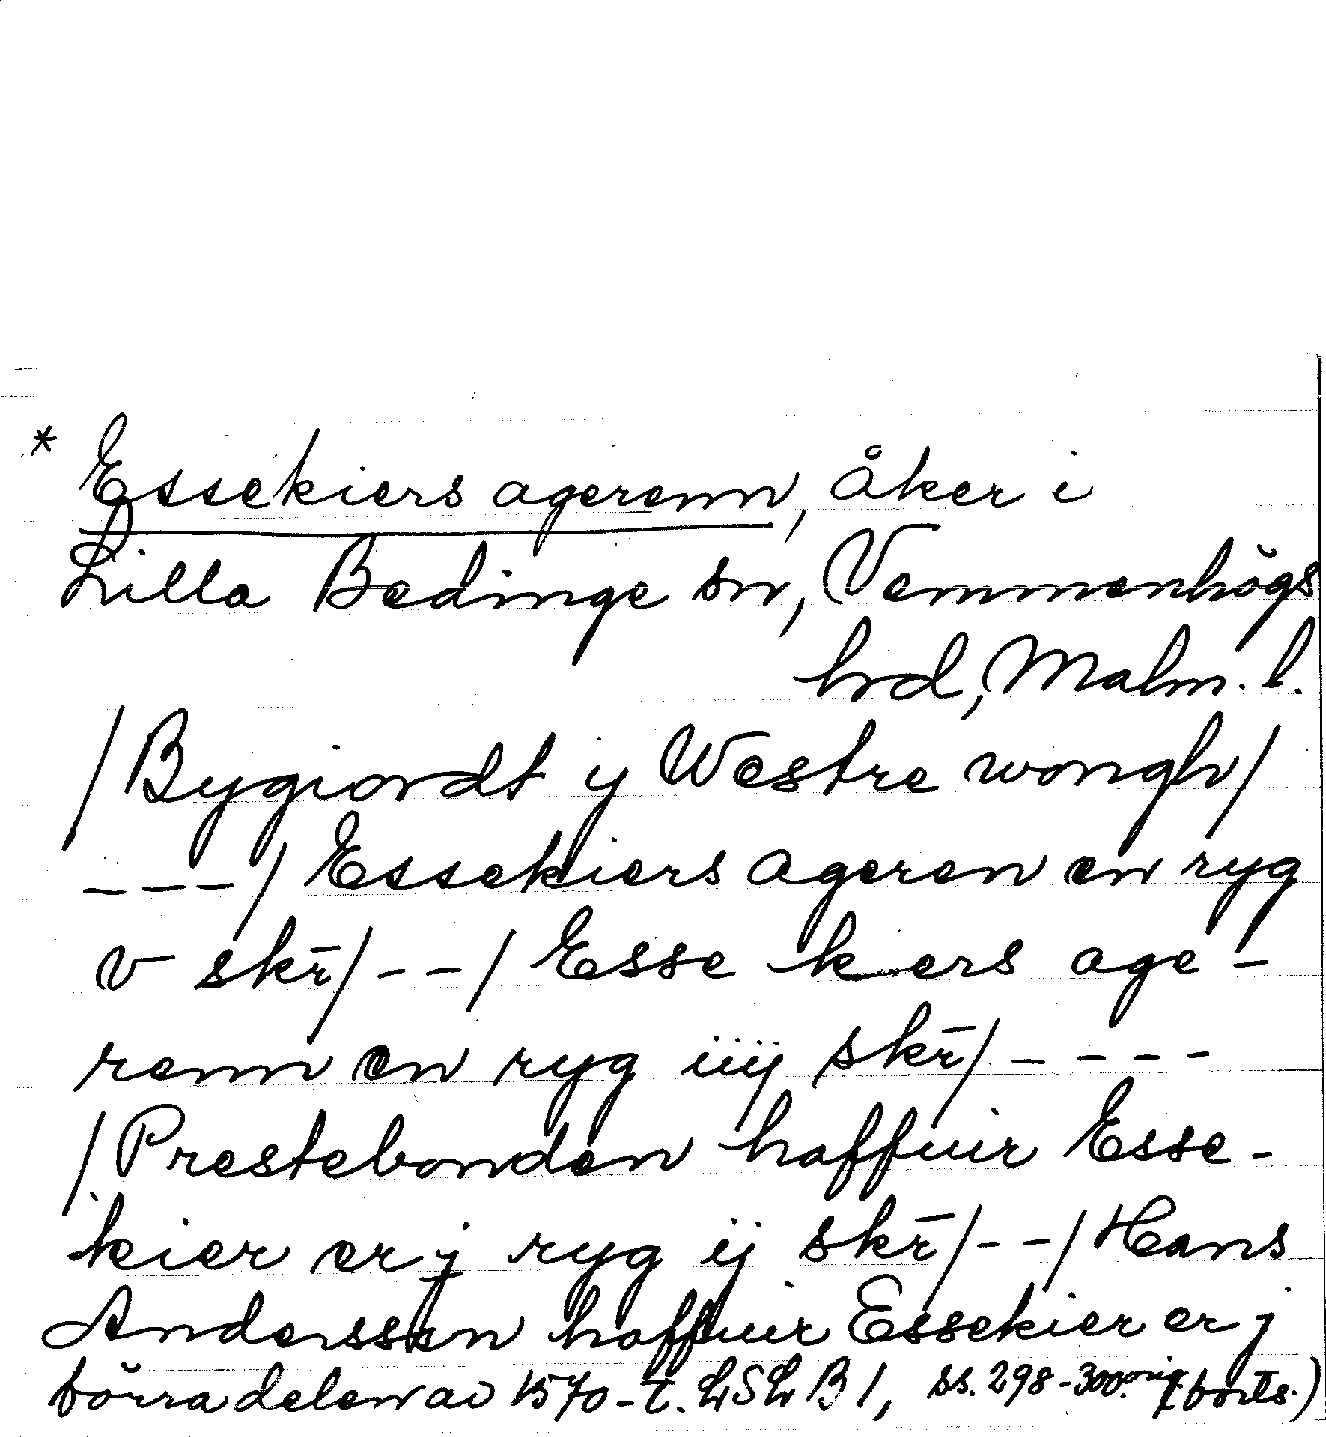 * Essekiers agerenn, åker i
Lilla Bedinge sn, Vemmenhögs
hrd, Malm. l.
/Bygiordt y Westre wongh/
---/ Essekiers ageren en ryg
v skr̄/--/ Esse kers age-
renn en ryg iiij skr̄/----
/Prestebonden haffuir Esse-
kier er j ryg ij skr̄/--/Hans
Anderssen haffuir Essekier er j
förra delen av 1570-t. LSL B 1, ss. 298-300. (forts.)